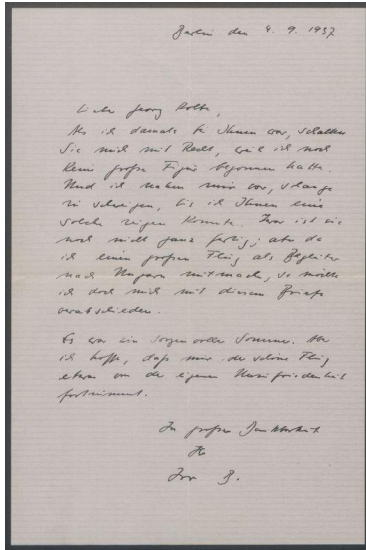 Berlin den 4. 9. 1937
Lieber Georg Kolbe,
Als ich damals bei Ihnen war, schalten
Sie mich mit Recht, weil ich noch
keine große Figur begonnen hatte.
Und ich nahm mir vor, solange
zu schweigen, bis ich Ihnen eine
solche zeigen könnte. Zwar ist sie
noch nicht ganz fertig, aber da
ich einen großen Flug als Begleiter
nach Ungarn mitmache, so möchte
ich doch mich mit diesem Briefe
verabschieden.
Es war ein sorgenvoller Sommer. Aber
ich hoffe, daß mir der schöne Flug
etwas von der eigenen Unzufriedenheit
fortnimmt.
In großer Dankbarkeit
Ihr
B.